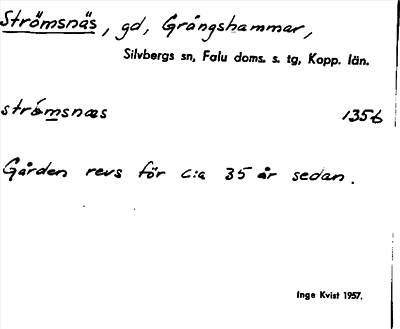 Strömsnäs, gd, Grängshammar,
Silvbergs sn, Falu doms. s. tg, Kopp. län.
strö́msnæs 1356
Gården revs för c:a 35 år sedan.
Inge Kvist 1957.